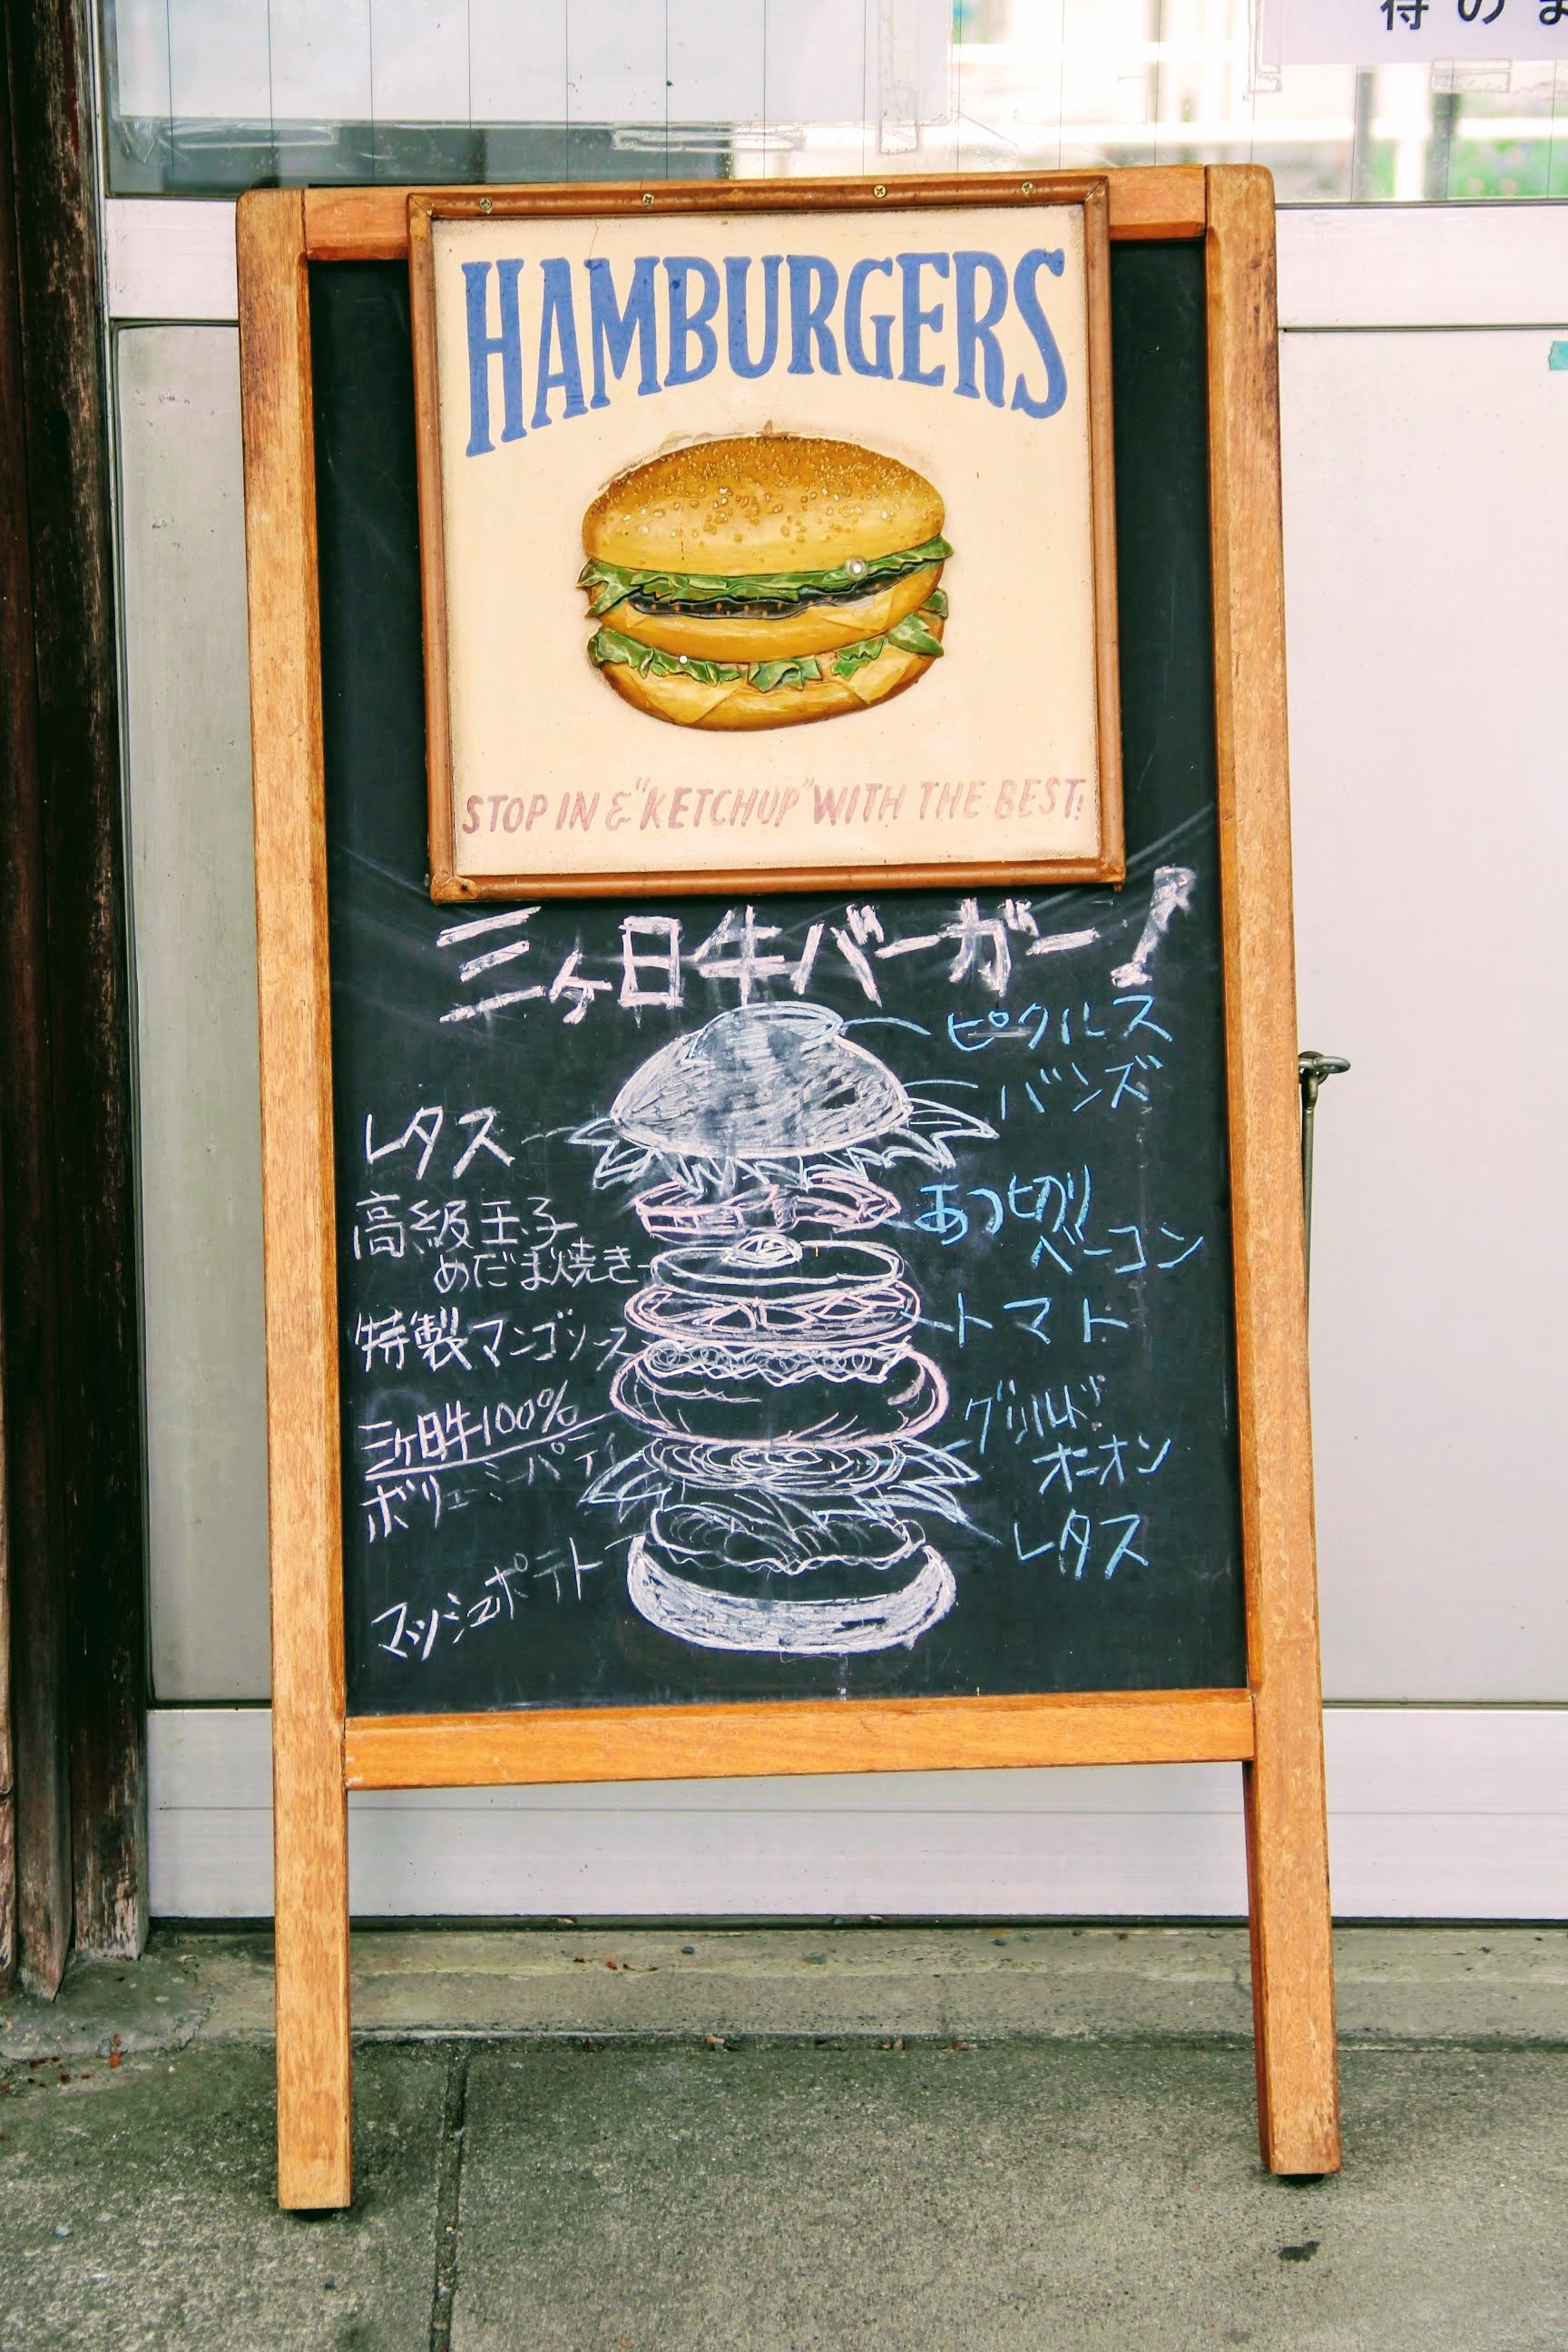 待のま
HAMBURGERS
STOP IN & "KETCHUP" WITH THE BEST!
三ヶ日牛バーガー!
ピクルス
バンズ
レタス
高級玉子
めだま焼き
あつ切り
ベーコン
特製マンゴソース
トマト
三ケ日牛100%
ボリューミーパティ
グリルド
オニオン
レタス
マッシュポテト